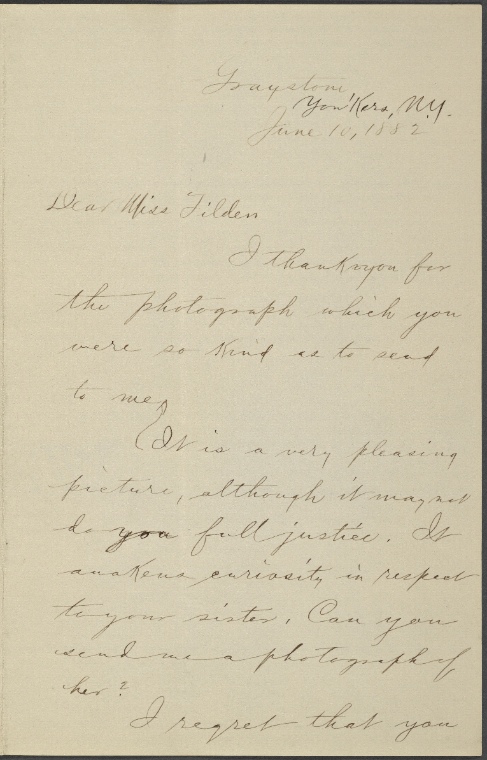 Graystone
Yonkers, N.Y.
June 10, 1882
Dear Miss Tilden
I thank you for
the photograph which you
were so kind as to send
to me.
It is a very pleasing
picture, although it may not
do you full justice. It
awakens curiosity in respect
to your sister. Can you
send me a photograph of
her?
I regret that you